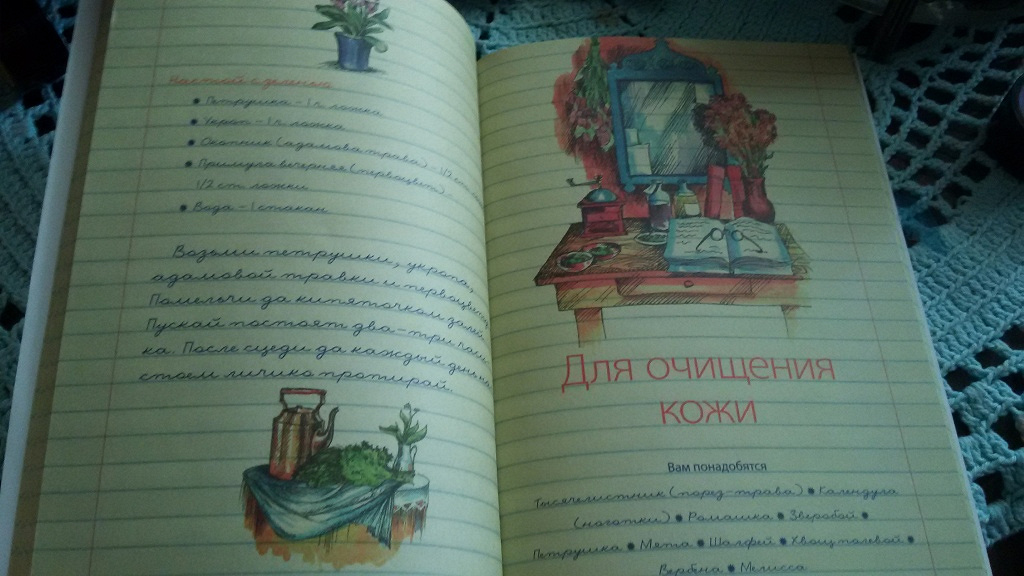 Настой с зеленью
• Петрушка - 1 ч. ложка
• Укроп - 1 ч. ложка
• Окопник (адамова трава) - 1/2 ст.
• Примула вечерняя (первоцвет)
1/2 ст. ложки
• Вода - 1 стакан
Возьми петрушки, укропа,
адамовой травки и первоцвета.
Помельчи да кипяточком залей.
Пускай постоят два-три часи
ка. После сцеди да каждый день на
стоем личико протирай.
Для очищения
кожи
Вам понадобятся
Тысячелистник (порез-трава) • Календула
(ноготки) • Ромашка • Зверобой •
Петрушка • Мята • Шалфей • Хвощ полевой •
Вербена • Мелисса